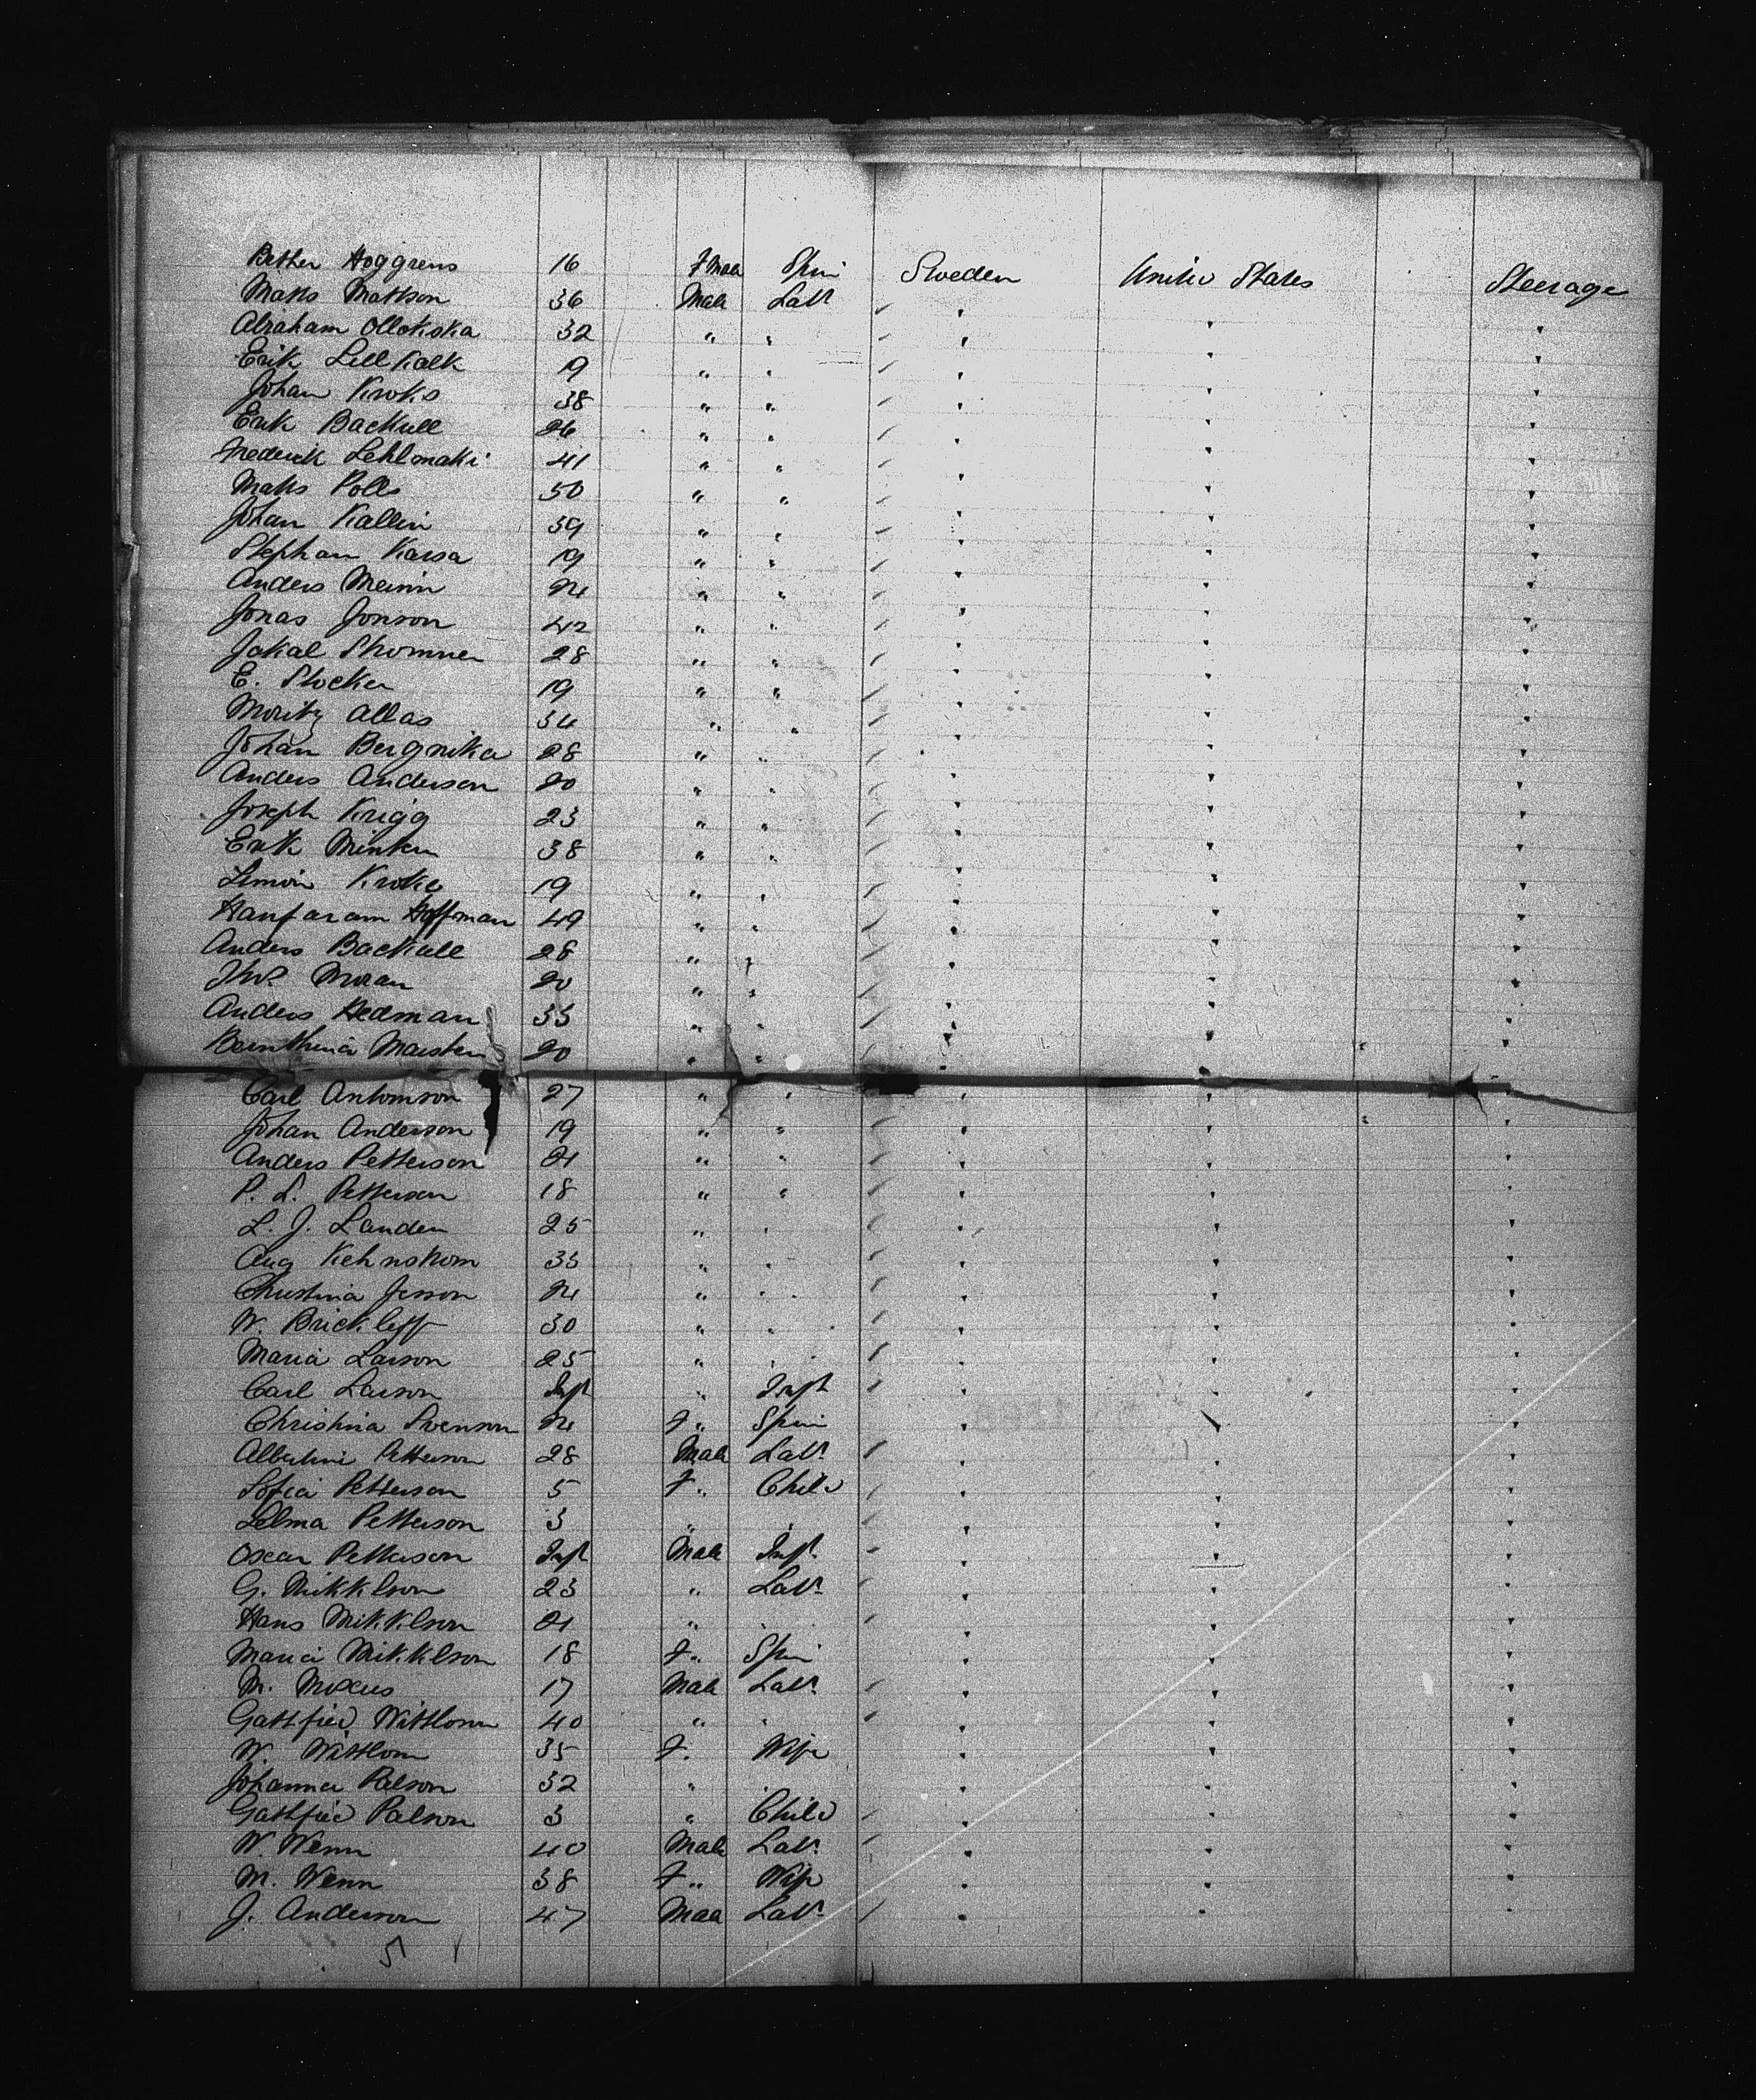 Bether Hoggrens 16 Fmale Spin Sweden United States Steerage
Matts Mattson 36 Male Labr " " "
Abraham Ollokoka 32 " " " " "
Erik Lillkalk 19 " " " " "
Johan Kroks 38 " " " " "
Erik Backull 26 " " " " "
Frederick Lehlmaki 41 " " " " "
Matts Polls 50 " " " " "
Johan Kallin 39 " " " " "
Stephan Karsa 19 " " " " "
Anders Meinin 24 " " " " "
Jonas Jonson 42 " " " " "
Jakal Shomner 28 " " " " "
E. Stocker 19 " " " " "
Moritz Allas 34 " " " " "
Johan Bergnika 28 " " " " "
Anders Anderson 20 " " " " "
Joseph Krigg 23 " " " " "
Erik Minken 38 " " " " "
Simon Kroke 19 " " " " "
Hoffman 49 " " " " "
Anders Backull 28 " " " " "
Moran 20 " " " " "
Anders Hedman 35 " " " " "
Maisten 20 " " " " "
Carl Antomson 27 " " " " "
Johan Anderson 19 " " " " "
Anders Petterson 21 " " " " "
P. L. Petterson 18 " " " " "
L. J. Landen 25 " " " " "
Aug Kehnstrom 35 " " " " "
Christina Jesson 24 " " " " "
W. Brickleff 30 " " " " "
Maria Larson 25 " " " " "
Carl Larson Inft " Inft " " "
Christina Svenson 24 F " Spin " " "
Albertini Petterson 28 Male Labr " " "
Sofia Petterson 5 F " Child " " "
Selma Petterson 3 " " " " "
Oscar Petterson Inft Male Inft " " "
G. Mikkelson 23 " Labr " " "
Hans Mikkelson 21 " " " " "
Maria Mikkelson 18 F " Spin " " "
M. 17 Male Labr " " "
Gattfried Wittlorm 40 " " " " "
W. Wittlorm 35 F. Wife " " "
Johanna Palson 32 " " " " "
Gattfried Palson 3 " Child " " "
W. Wenn 40 Male Labr " " "
M. Wenn 38 F " Wife " " "
J. Anderson 47 Male Labr " " "
51